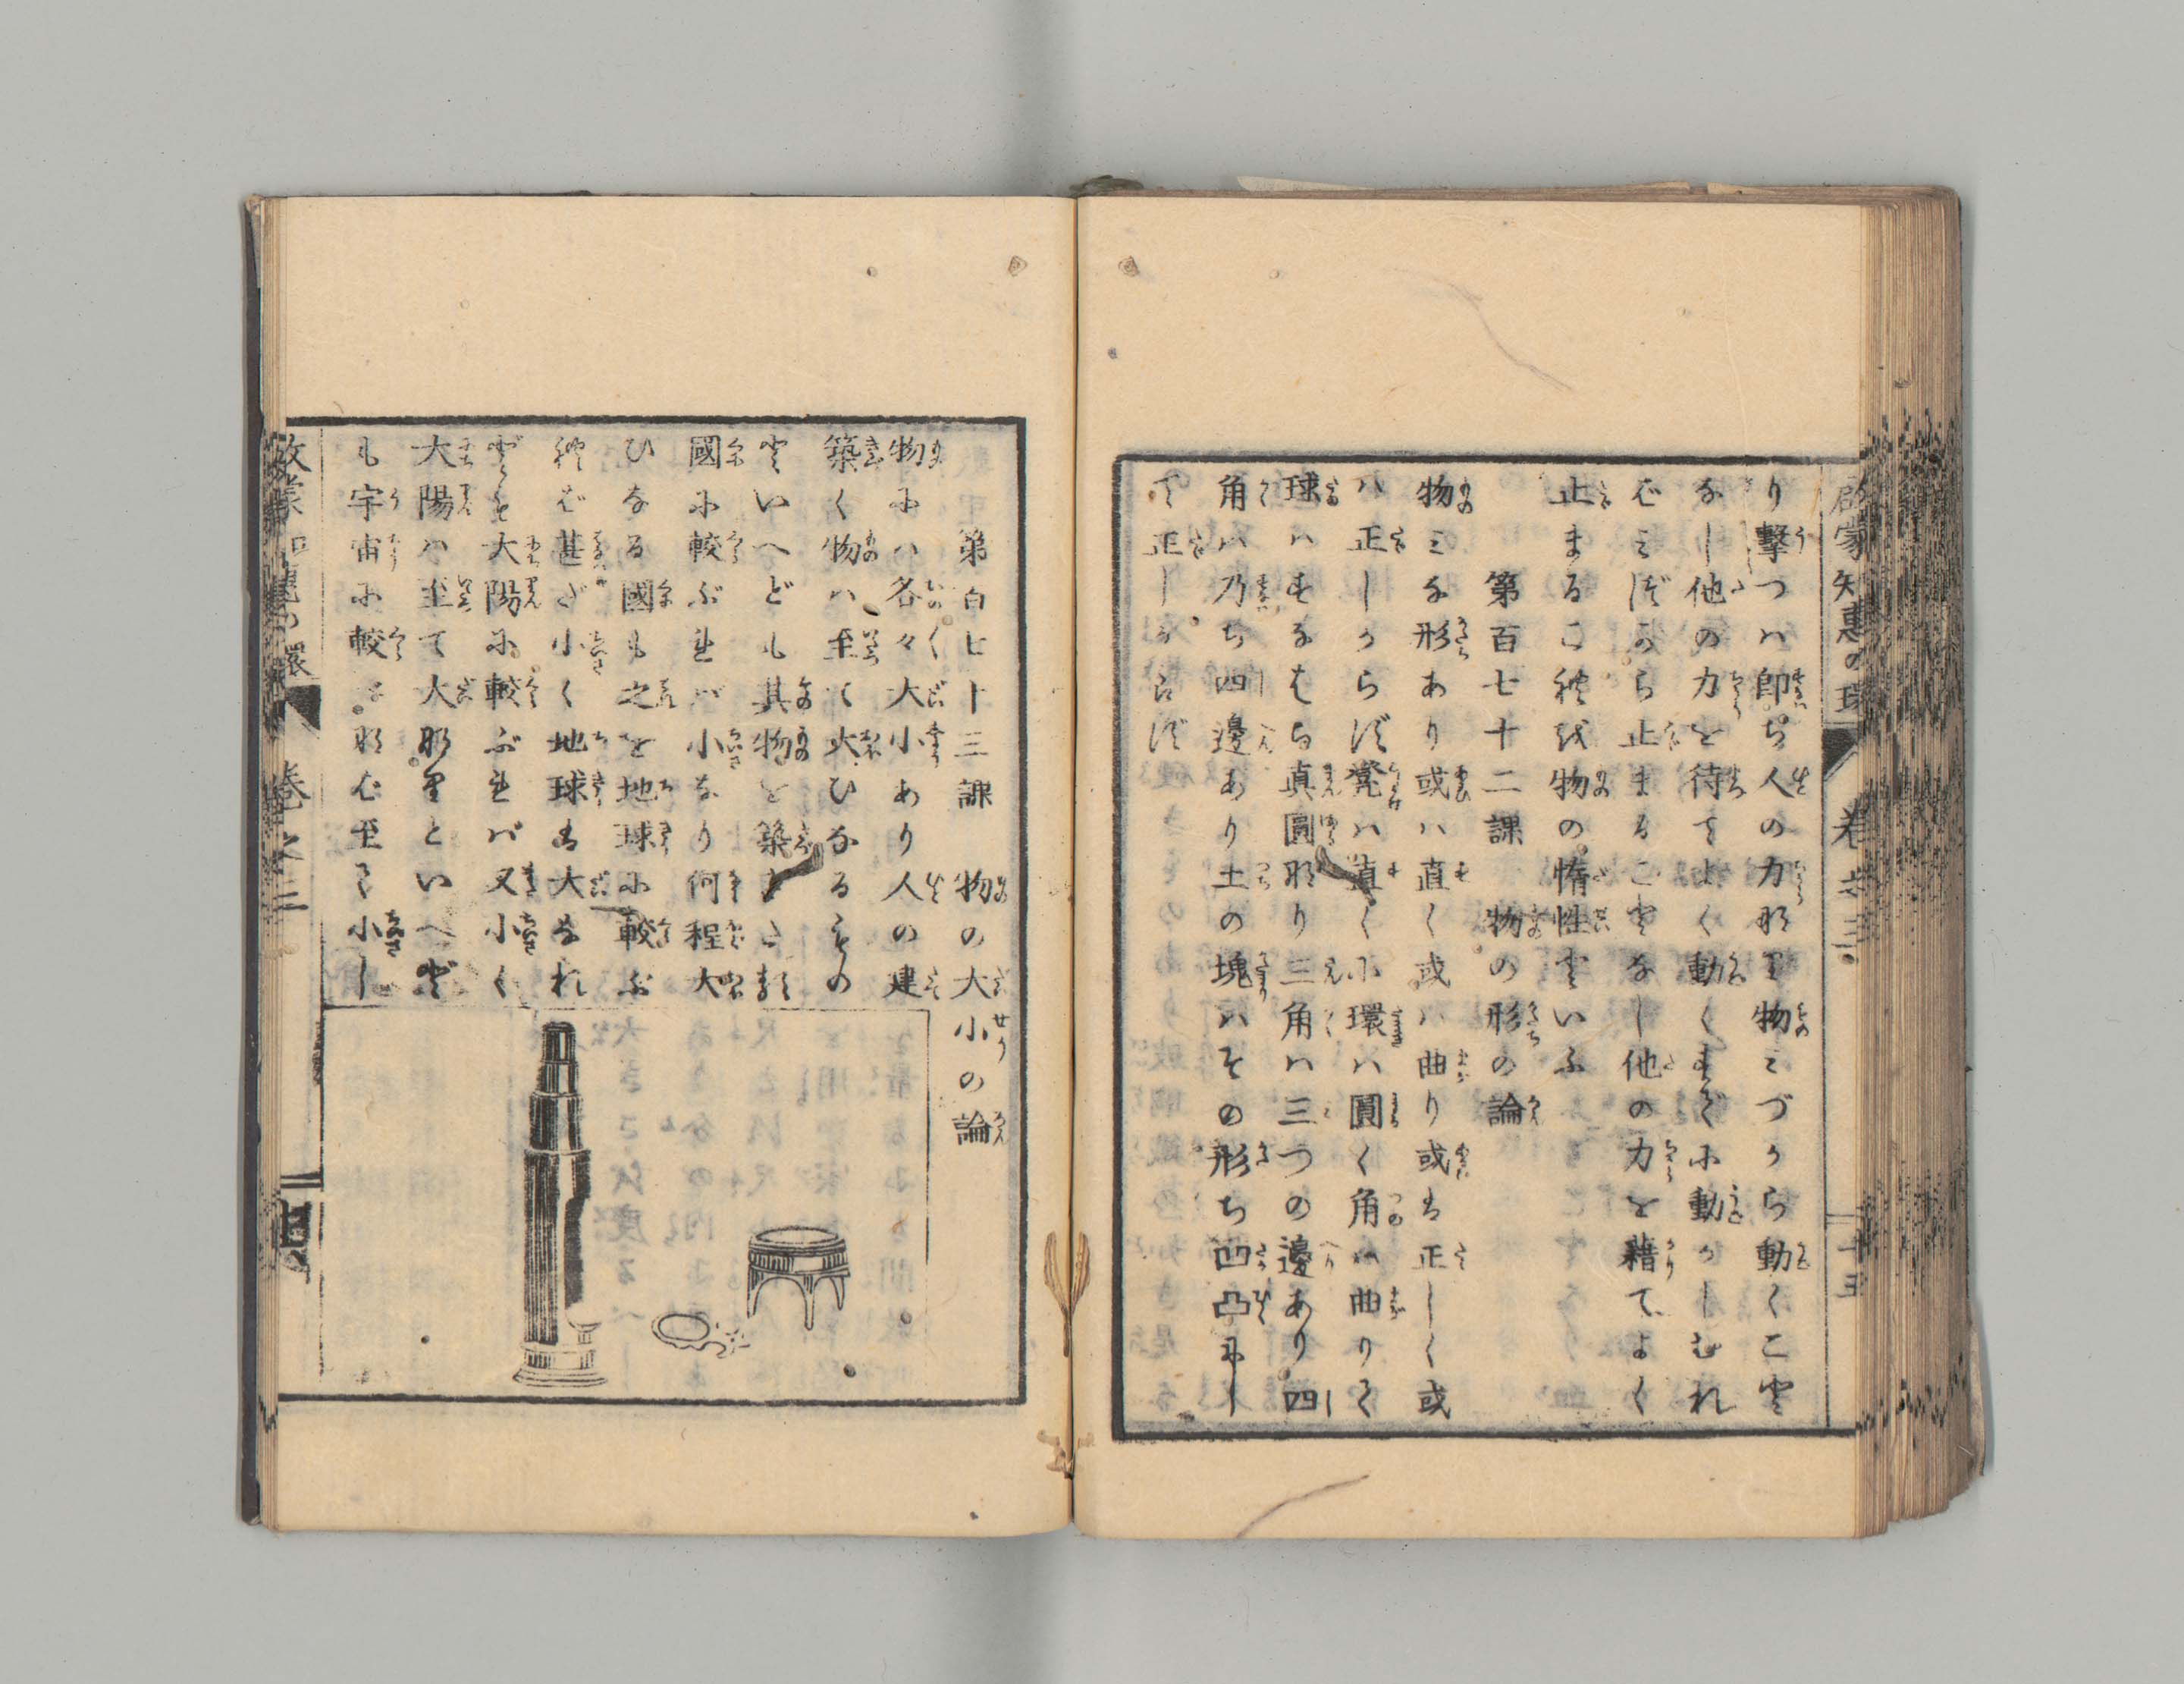 啓蒙知惠の環 卷之三 十五
り撃つハ卽ち人の力なり物ミづから動くこと
なし他の力を待てよく動くすでに動かしむれ
バミづから止まることなし他の力を藉てよく
止まるこれを物の惰性といふ
第百七十二課 物の形の論
物ミな形あり或ハ直く或ハ曲り或は正しく或
ハ正しからず凳ハ直くに環ハ圓く角ハ曲りて
球ハすなはち眞圓なり三角ハ三つの邊あり四
角ハ乃ち四邊あり土の塊ハその形ち凹凸にし
て正しからず
第百七十三課 物の大小の論
物にハ各々大小あり人の建
築く物ハ至て大ひなるもの
といへども其物を築きたる
國に較ぶれバ小なり何程大
ひなる國も之を地球に較ぶ
れば甚だ小く地球は大なれ
ども大陽に較ぶれバ又小く
大陽ハ至て大なりといへど
も宇宙に較ぶれば至て小し
啓蒙知惠の環 卷之三